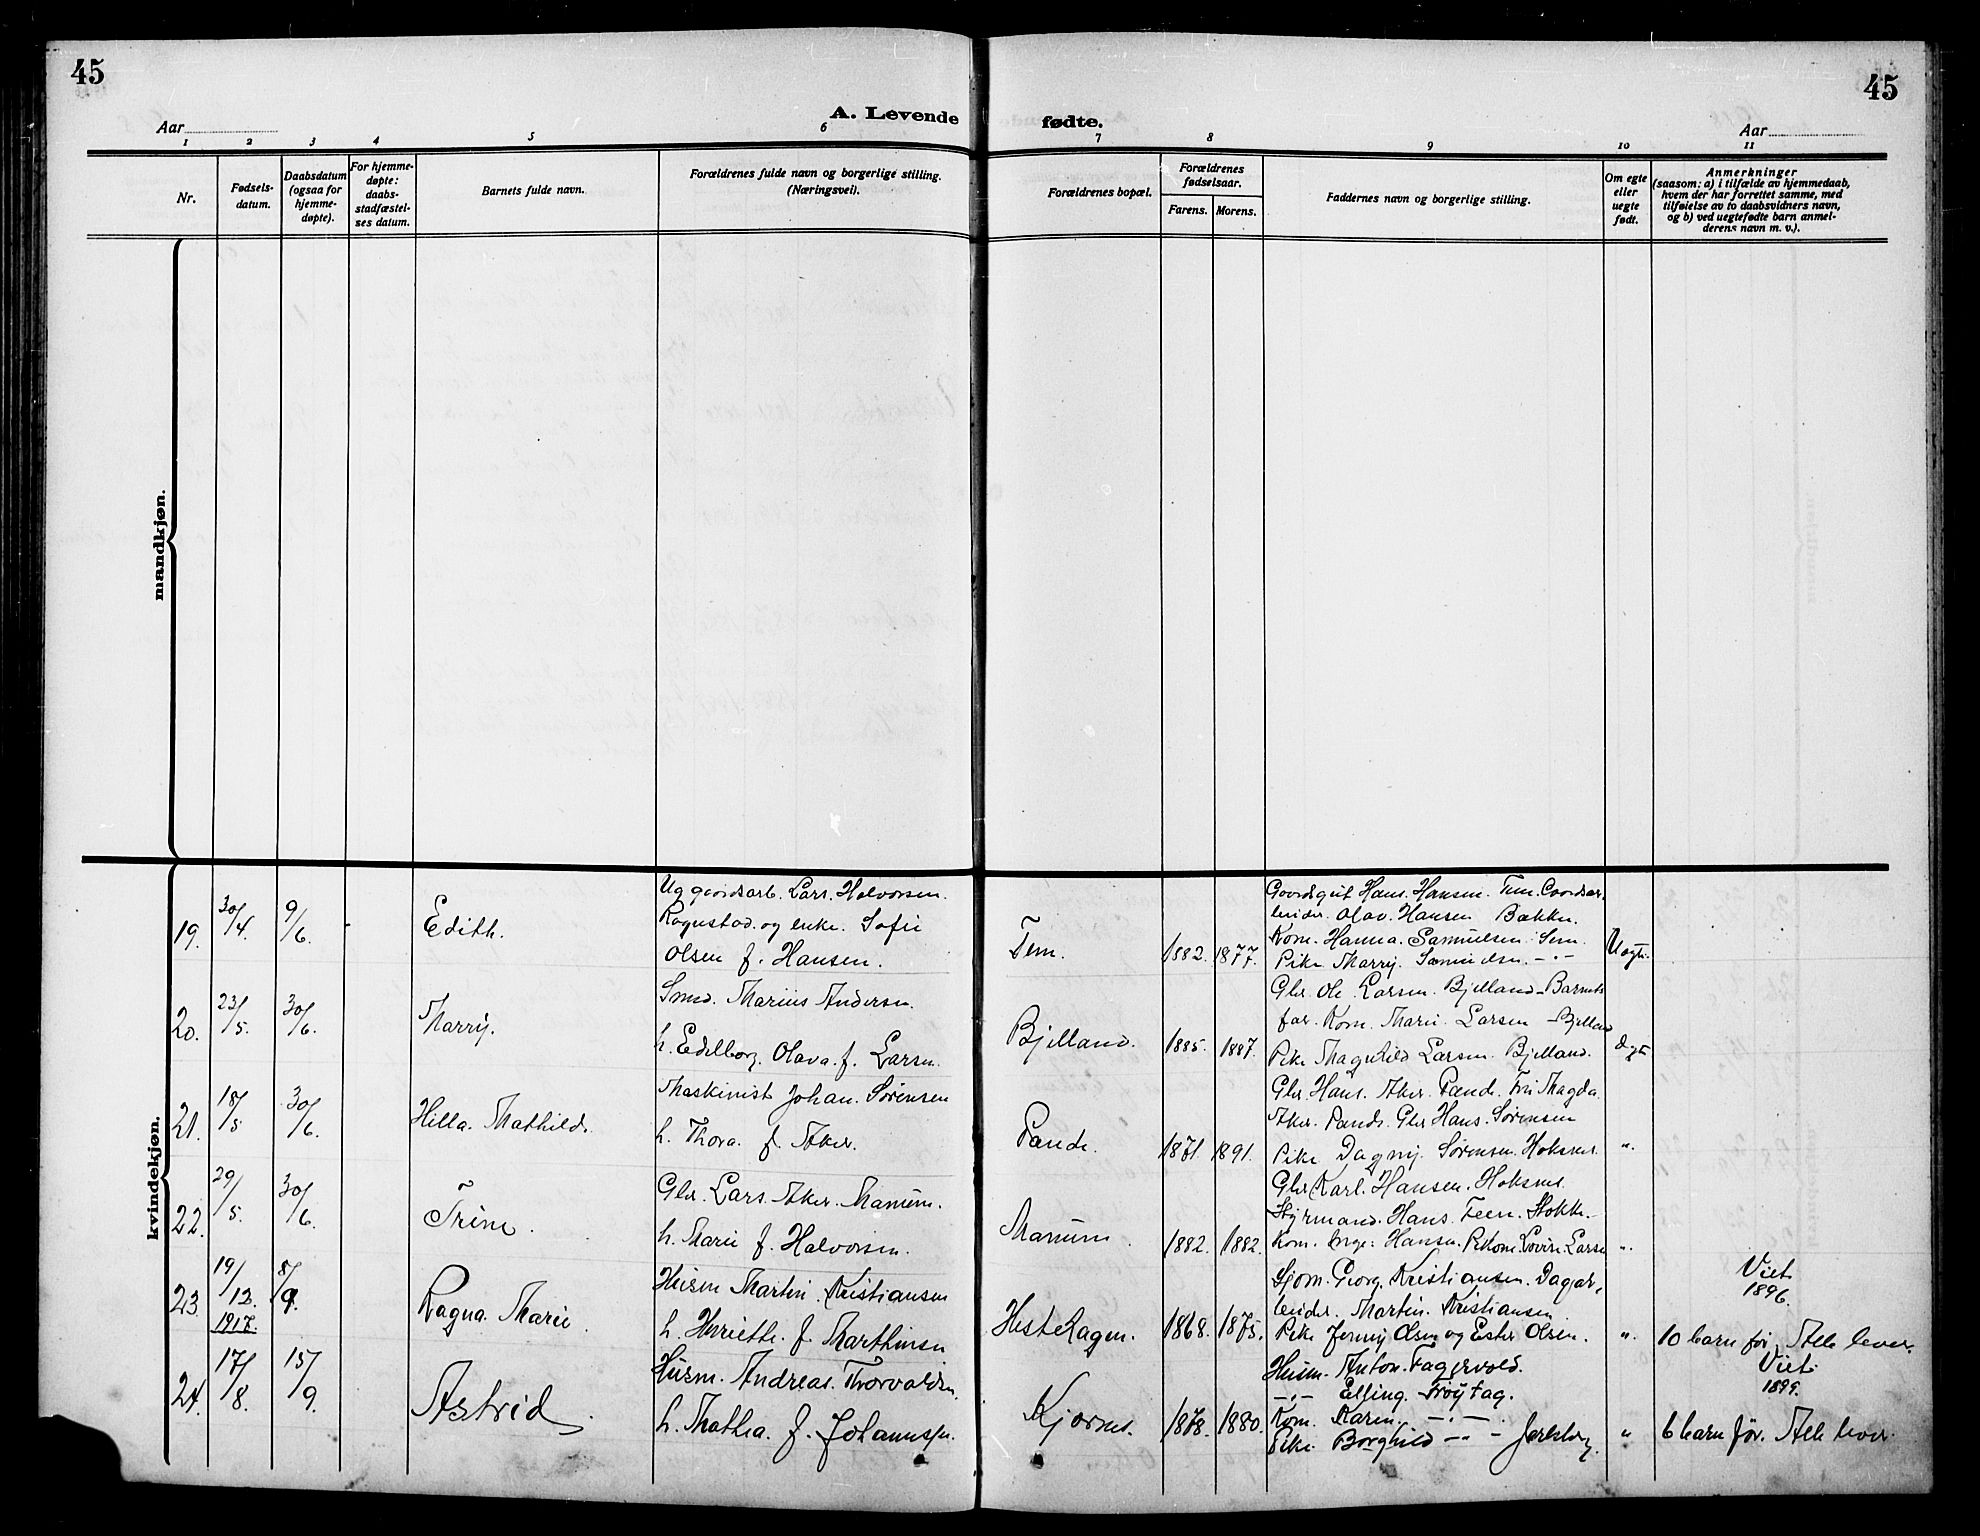 45
45
A. Levende
fødte.
Aar
Aar
1 2 3 4 5 6 7 8 9 10 11
Nr.
Fødsels-
datum.
Daabsdatum
(ogsaa for
hjemme-
døpte).
For hjemme-
døpte:
daabs-
stadfæstel-
ses datum.
Barnets fulde navn.
Forældrenes fulde navn og borgerlige stilling.
(Næringsvei).
Forældrenes bopæl.
Forældrenes
fødselsaar.
Farens. Morens.
Faddernes navn og borgerlige stilling.
Om egte
eller
uegte
født.
Anmerkninger
(saasom: a) i tilfælde av hjemmedaab,
hvem der har forrettet samme, med
tilføielse av to daabsvidners navn,
og b) ved uegtefødte barn anmel-
derens navn m. v.).
mandkjøn.
kvindekjøn.
19. 30/4. 9/6. - Edith.
Ug gaardsarb. Lars. Halvorsen.
Rogustad. og enke. Sofie
Olsen f. Hansen.
Tem. 1882. 1877.
Gaardsgut Hans. Hansen. Tem.
Olav. Hansen Bakke.
Kom. Hanna. Samuelsen. Sem.
Pike Marry. Samuelsen. -"-
Uegte.
20. 23/5. 30/6. Marry.
Smed. Marius Andersen.
h. Edelborg. Olava. f. Larsen.
Bjelland. 1885. 1887.
Gbr. Ole. Larsen. Bjelland - Barnets
far. Kom. Marie. Larsen - Bjelland
Pike Magnhild Larsen. Bjelland.
Egte
21. 18/5 30/6. Hilla. Mathilde.
Maskinist Johan. Sørensen
h. Thora. f. Aker.
Pande. 1871. 1891.
Gbr. Hans. Aker. Pande. Fru Magda.
Aker. Pande. Gbr Hans. Sørensen
Pike Dagny. Sørensen. Hoksnes.
".
22. 29/5. 30/6. Trine.
Gbr. Lars. Aker. Manum.
h. Marie f. Halvorsen.
Manum. 1882. 1882.
Gbr. Karl. Hansen. Hoksnes.
Styrmand. Hans. Feen. Stokke.
Kom. Inge. Hansen. Lovise. Larsen
".
23. 19/12. 1917. 8/9. Ragna. Marie.
Husm Martin. Kristiansen
h. Henriette. f. Marthinsen
Hestehagen. 1868. 1875.
Sjom. Georg. Kristiansen. Dagar,
beider. Martin. Kristiansen
Pike Jenny Olsen og Ester Olsen.
".
Viet
1896.
10 barn før. Alle lever.
24. 17/8. 15/9. Astrid.
Husm. Andreas. Thorvaldsen.
h. Mathea. f. Johannessen.
Kjørnes. 1878. 1880.
Husm. Anton. Fagervold.
-"- Elling. Frøytag.
Kom. Karen. -"-
Pike. Borghild -"- Jarlsberg.
"
Viet
1899.
6 barn før. Alle lever.